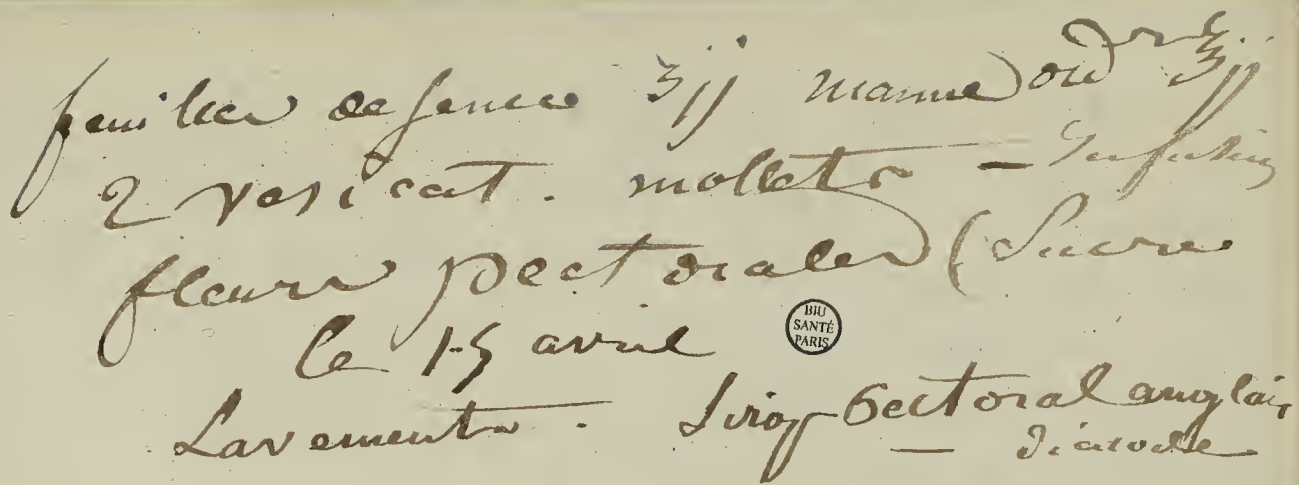 feuilles de sence ʒjj manne ord ʒjj
2 vesicat. mollets - Infusion
fleurs pectorales (Sucre
le 15 avril
BIU
SANTÉ
PARIS
Lavements. Sirop Pectoral anglais
— diacode